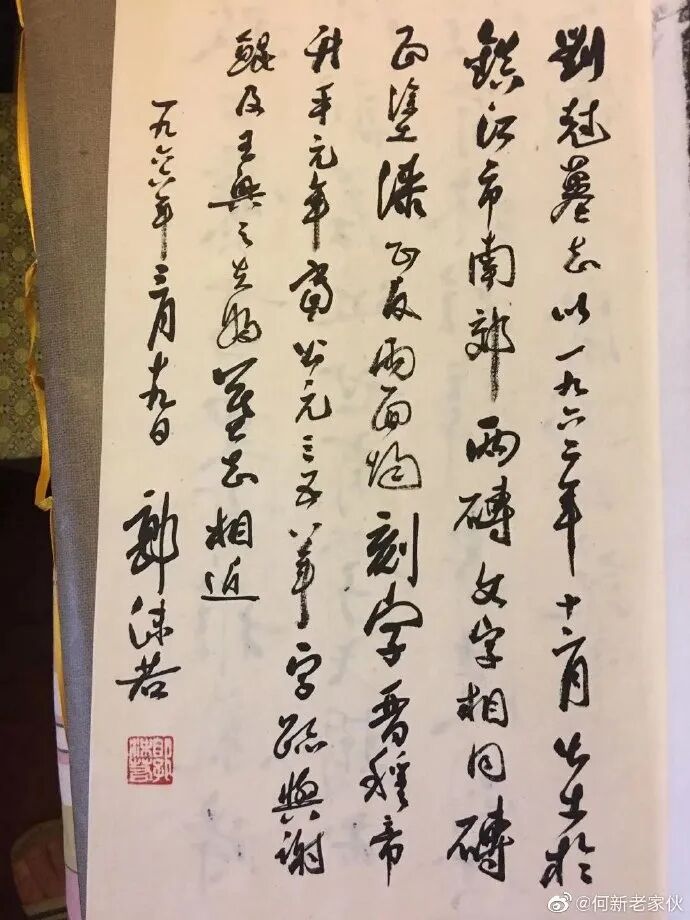 劉尅墓志以一九六二年十二月出土於
鎮江市南郊兩磚文字相同磚
塗漆正反兩面均刻字晋穆帝
升平元年當公元三五八年字跡與謝
鯤及王興之夫婦墓志相近
一九六六年三月十九日 郭沫若
@何新老家伙